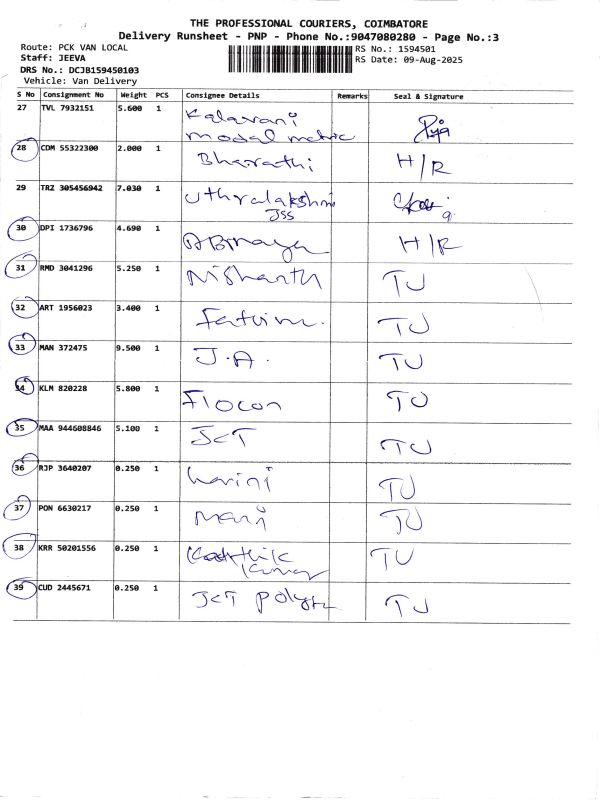 THE PROFESSIONAL COURIERS, COIMBATORE
Delivery Runsheet - PNP - Phone No.:9047080280 - Page No.:3
Route: PCK VAN LOCAL
RS No.: 1594501
Staff: JEEVA
RS Date: 09-Aug-2025
DRS No.: DCJB159450103
Vehicle: Van Delivery
S No Consignment No Weight PCS Consignee Details Remarks Seal & Signature
27 TVL 7932151 5.600 1 Kalavani
modal metric
28 CDM 55322300 2.000 1 Bharathi H/R
29 TRZ 305456942 7.030 1 Uthralakshmi
JSS
30 DPI 1736796 4.690 1 H/R
31 RMD 3041296 5.250 1 Nishanth TU
32 ART 1956023 3.400 1 TU
33 MAN 372475 9.500 1 J.A. TU
34 KLM 820228 5.800 1 Flocon TU
35 MAA 944608846 5.100 1 JCT TU
36 RJP 3640207 0.250 1 harini TU
37 PON 6630217 0.250 1 Mari TU
38 KRR 50201556 0.250 1 Karthik TU
Kumar
39 CUD 2445671 0.250 1 JCT TU